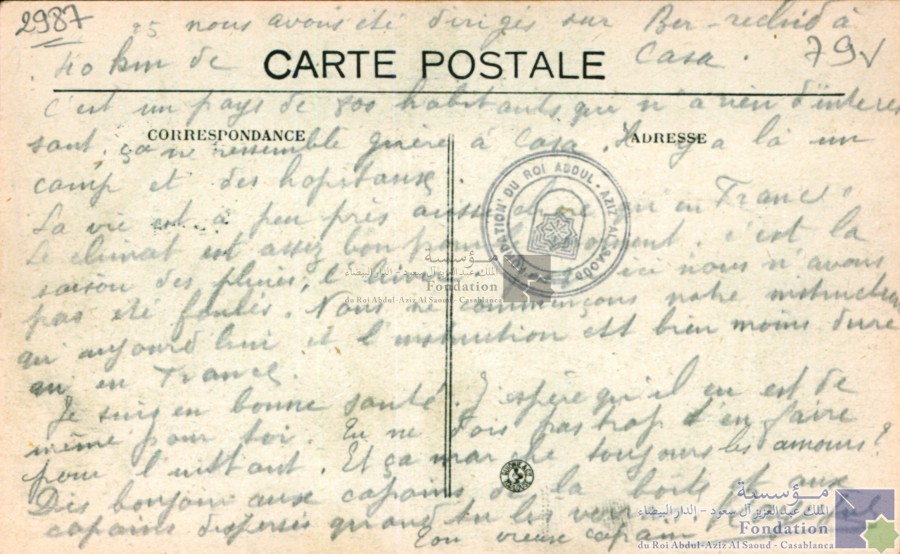 2987
25 nous avons été dirigés sur Ber-rechid à
79
40 km de Casa.
CARTE POSTALE
C'est un pays de 800 habitants qui n'a rien d'interes
CORRESPONDANCE
ADRESSE
sant. ça ne ressemble guère à Casa. Il y a là un
camp et des hopitaux.
La vie est à peu près aussi qu'en France
Le climat est assez bon c'est la
saison des pluies, l'hiver ici nous n'avons
pas été Nous ne commençons notre instruction
qu'aujourd'hui et l'instruction est bien moins dure
qu'en France.
Je suis en bonne santé. J'espère qu'il en est de
même pour toi. Tu ne dois pas trop t'en faire
pour l'instant. Et ça marche toujours les amours?
Dis bonjour aux copains de la boite et aux
copains dispersés quand tu les
Ton vieux copain
FONDATION DU ROI ABDUL-AZIZ AL SAOUD
مؤسسة
الملك عبد العزيز آل سعود - الدار البيضاء
Fondation
du Roi Abdul-Aziz Al Saoud - Casablanca
مؤسسة
الملك عبد العزيز آل سعود - الدار البيضاء
Fondation
du Roi Abdul-Aziz Al Saoud - Casablanca